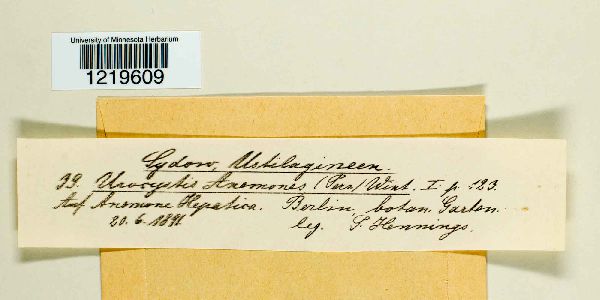 University of Minnesota Herbarium
1219609
Sydow, Ustilagineen.
39. Urocystis Anemones (Pers) Wint. I p. 123.
Auf Anemone Hepatica. Berlin, botan. Garten.
20. 6. 1891 leg. P. Hennings.